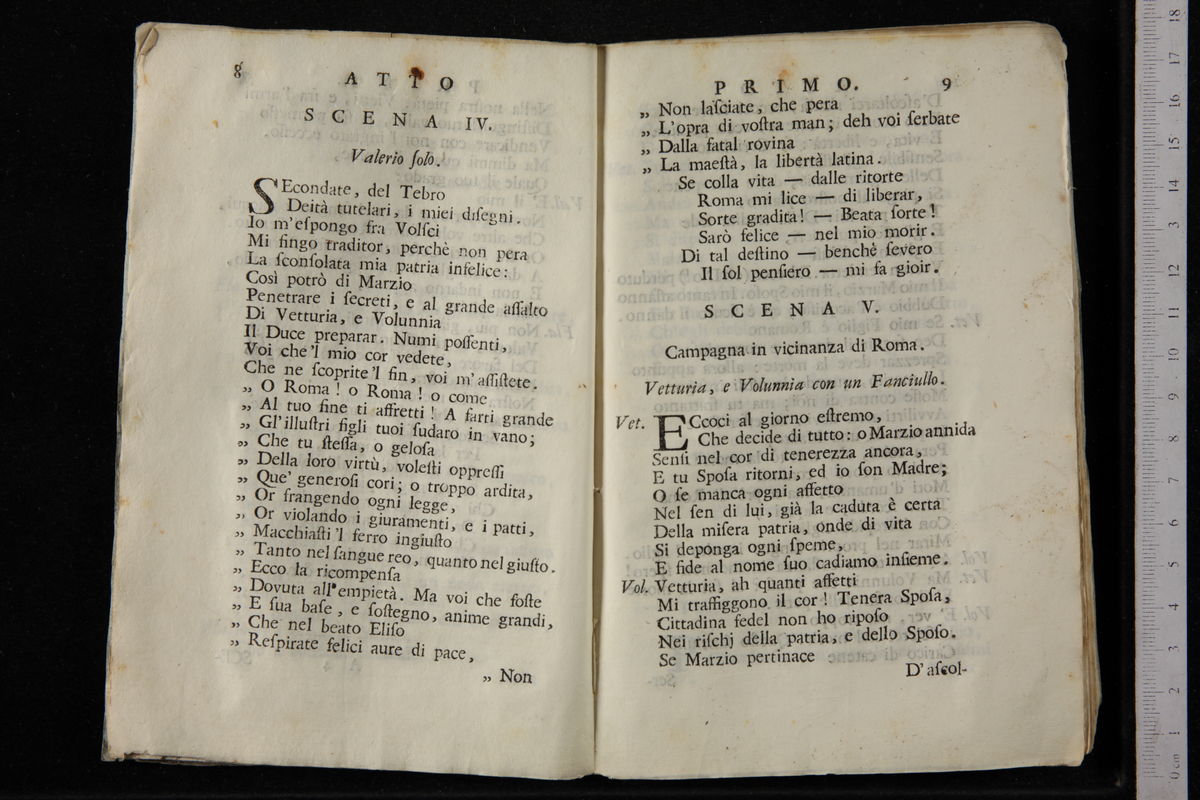 8
ATTO
SCENA IV.
Valerio ſolo.
SEcondate, del Tebro
Deità tutelari, i miei diſegni.
Io m'eſpongo fra Volſci
Mi fingo traditor, perchè non pera
La ſconſolata mia patria infelice:
Così potrò di Marzio
Penetrare i ſecreti, e al grande aſſalto
Di Vetturia, e Volunnia
Il Duce preparar. Numi poſſenti,
Voi che'l mio cor vedete,
Che ne ſcoprite'l fin, voi m'aſſiſtete.
„ O Roma! o Roma! o come
„ Al tuo fine ti affretti! A farti grande
„ Gl'illuſtri figli tuoi ſudaro in vano;
„ Che tu ſteſſa, o geloſa
„ Della loro virtù, voleſti oppreſſi
„ Que' generoſi cori; o troppo ardita,
„ Or frangendo ogni legge,
„ Or violando i giuramenti, e i patti,
„ Macchiaſti'l ferro ingiuſto
„ Tanto nel ſangue reo, quanto nel giuſto.
„ Ecco la ricompenſa
„ Dovuta all'empietà. Ma voi che foſte
„ E ſua baſe, e ſoſtegno, anime grandi,
„ Che nel beato Eliſo
„ Reſpirate felici aure di pace,
„ Non
PRIMO. 9
„ Non laſciate, che pera
„ L'opra di voſtra man; deh voi ſerbate
„ Dalla fatal rovina
„ La maeſtà, la libertà latina.
Se colla vita — dalle ritorte
Roma mi lice — di liberar,
Sorte gradita! — Beata ſorte!
Sarò felice — nel mio morir.
Di tal deſtino — benchè ſevero
Il ſol penſiero — mi fa gioir.
SCENA V.
Campagna in vicinanza di Roma.
Vetturia, e Volunnia con un Fanciullo.
Vet. ECcoci al giorno eſtremo,
Che decide di tutto: o Marzio annida
Senſi nel cor di tenerezza ancora,
E tu Spoſa ritorni, ed io ſon Madre;
O ſe manca ogni affetto
Nel ſen di lui, già la caduta è certa
Della miſera patria, onde di vita
Si deponga ogni ſpeme,
E fide al nome ſuo cadiamo inſieme.
Vol. Vetturia, ah quanti affetti
Mi traffiggono il cor! Tenera Spoſa,
Cittadina fedel non ho ripoſo
Nei riſchj della patria, e dello Spoſo.
Se Marzio pertinace
D'aſcol-